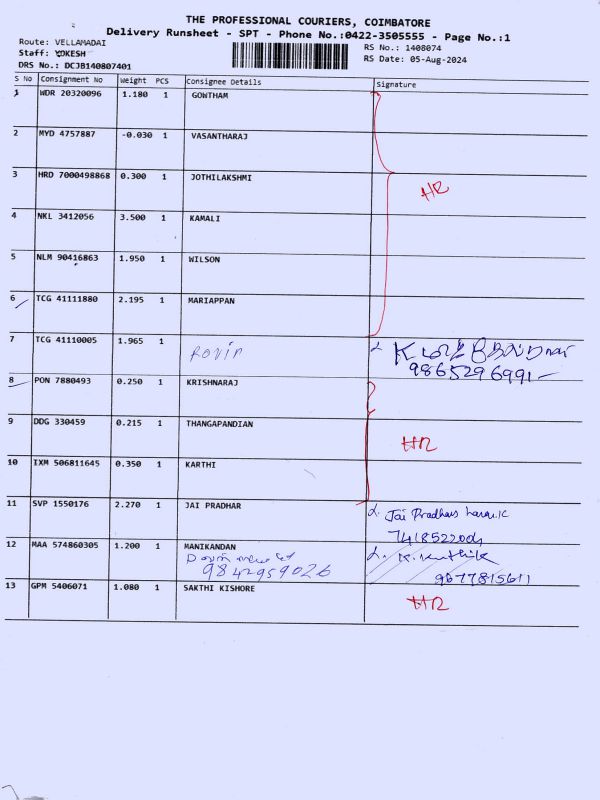 THE PROFESSIONAL COURIERS, COIMBATORE
Delivery Runsheet - SPT - Phone No.:0422-3505555 - Page No.:1
Route: VELLAMADAI
Staff: YOKESH
DRS No.: DCJB140807401
RS No.: 1408074
RS Date: 05-Aug-2024
S No Consignment No Weight PCS Consignee Details Signature
1 WDR 20320096 1.180 1 GOWTHAM
2 MYD 4757887 -0.030 1 VASANTHARAJ
3 HRD 7000498868 0.300 1 JOTHILAKSHMI
HR
4 NKL 3412056 3.500 1 KAMALI
5 NLM 90416863 1.950 1 WILSON
6 TCG 41111880 2.195 1 MARIAPPAN
7 TCG 41110005 1.965 1
9865296991
8 PON 7880493 0.250 1 KRISHNARAJ
9 DDG 330459 0.215 1 THANGAPANDIAN
HR
10 IXM 506811645 0.350 1 KARTHI
11 SVP 1550176 2.270 1 JAI PRADHAR
Jai Pradhar
7418522004
12 MAA 574860305 1.200 1 MANIKANDAN
9842959026
9677815611
13 GPM 5406071 1.080 1 SAKTHI KISHORE
HR